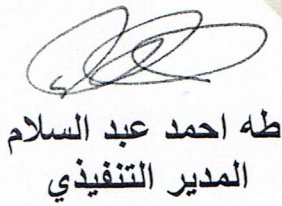 طه احمد عبد السلام
المدير التنفيذي